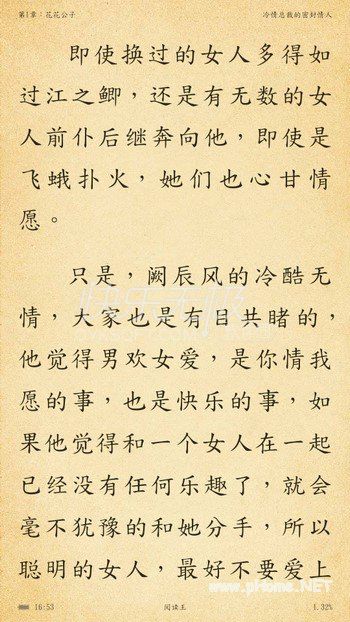 第1章：花花公子 冷情总裁的密封情人
即使换过的女人多得如
过江之鲫，还是有无数的女
人前仆后继奔向他，即使是
飞蛾扑火，她们也心甘情
愿。
只是，阙辰风的冷酷无
情，大家也是有目共睹的，
他觉得男欢女爱，是你情我
愿的事，也是快乐的事，如
果他觉得和一个女人在一起
已经没有任何乐趣了，就会
毫不犹豫的和她分手，所以
聪明的女人，最好不要爱上
www.pHome.NET
16:53 阅读王 1.32%